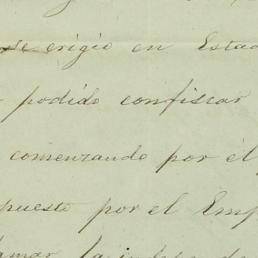 se erigió en Estad
podido confiscar
comenzando por el
puesto por el Emp